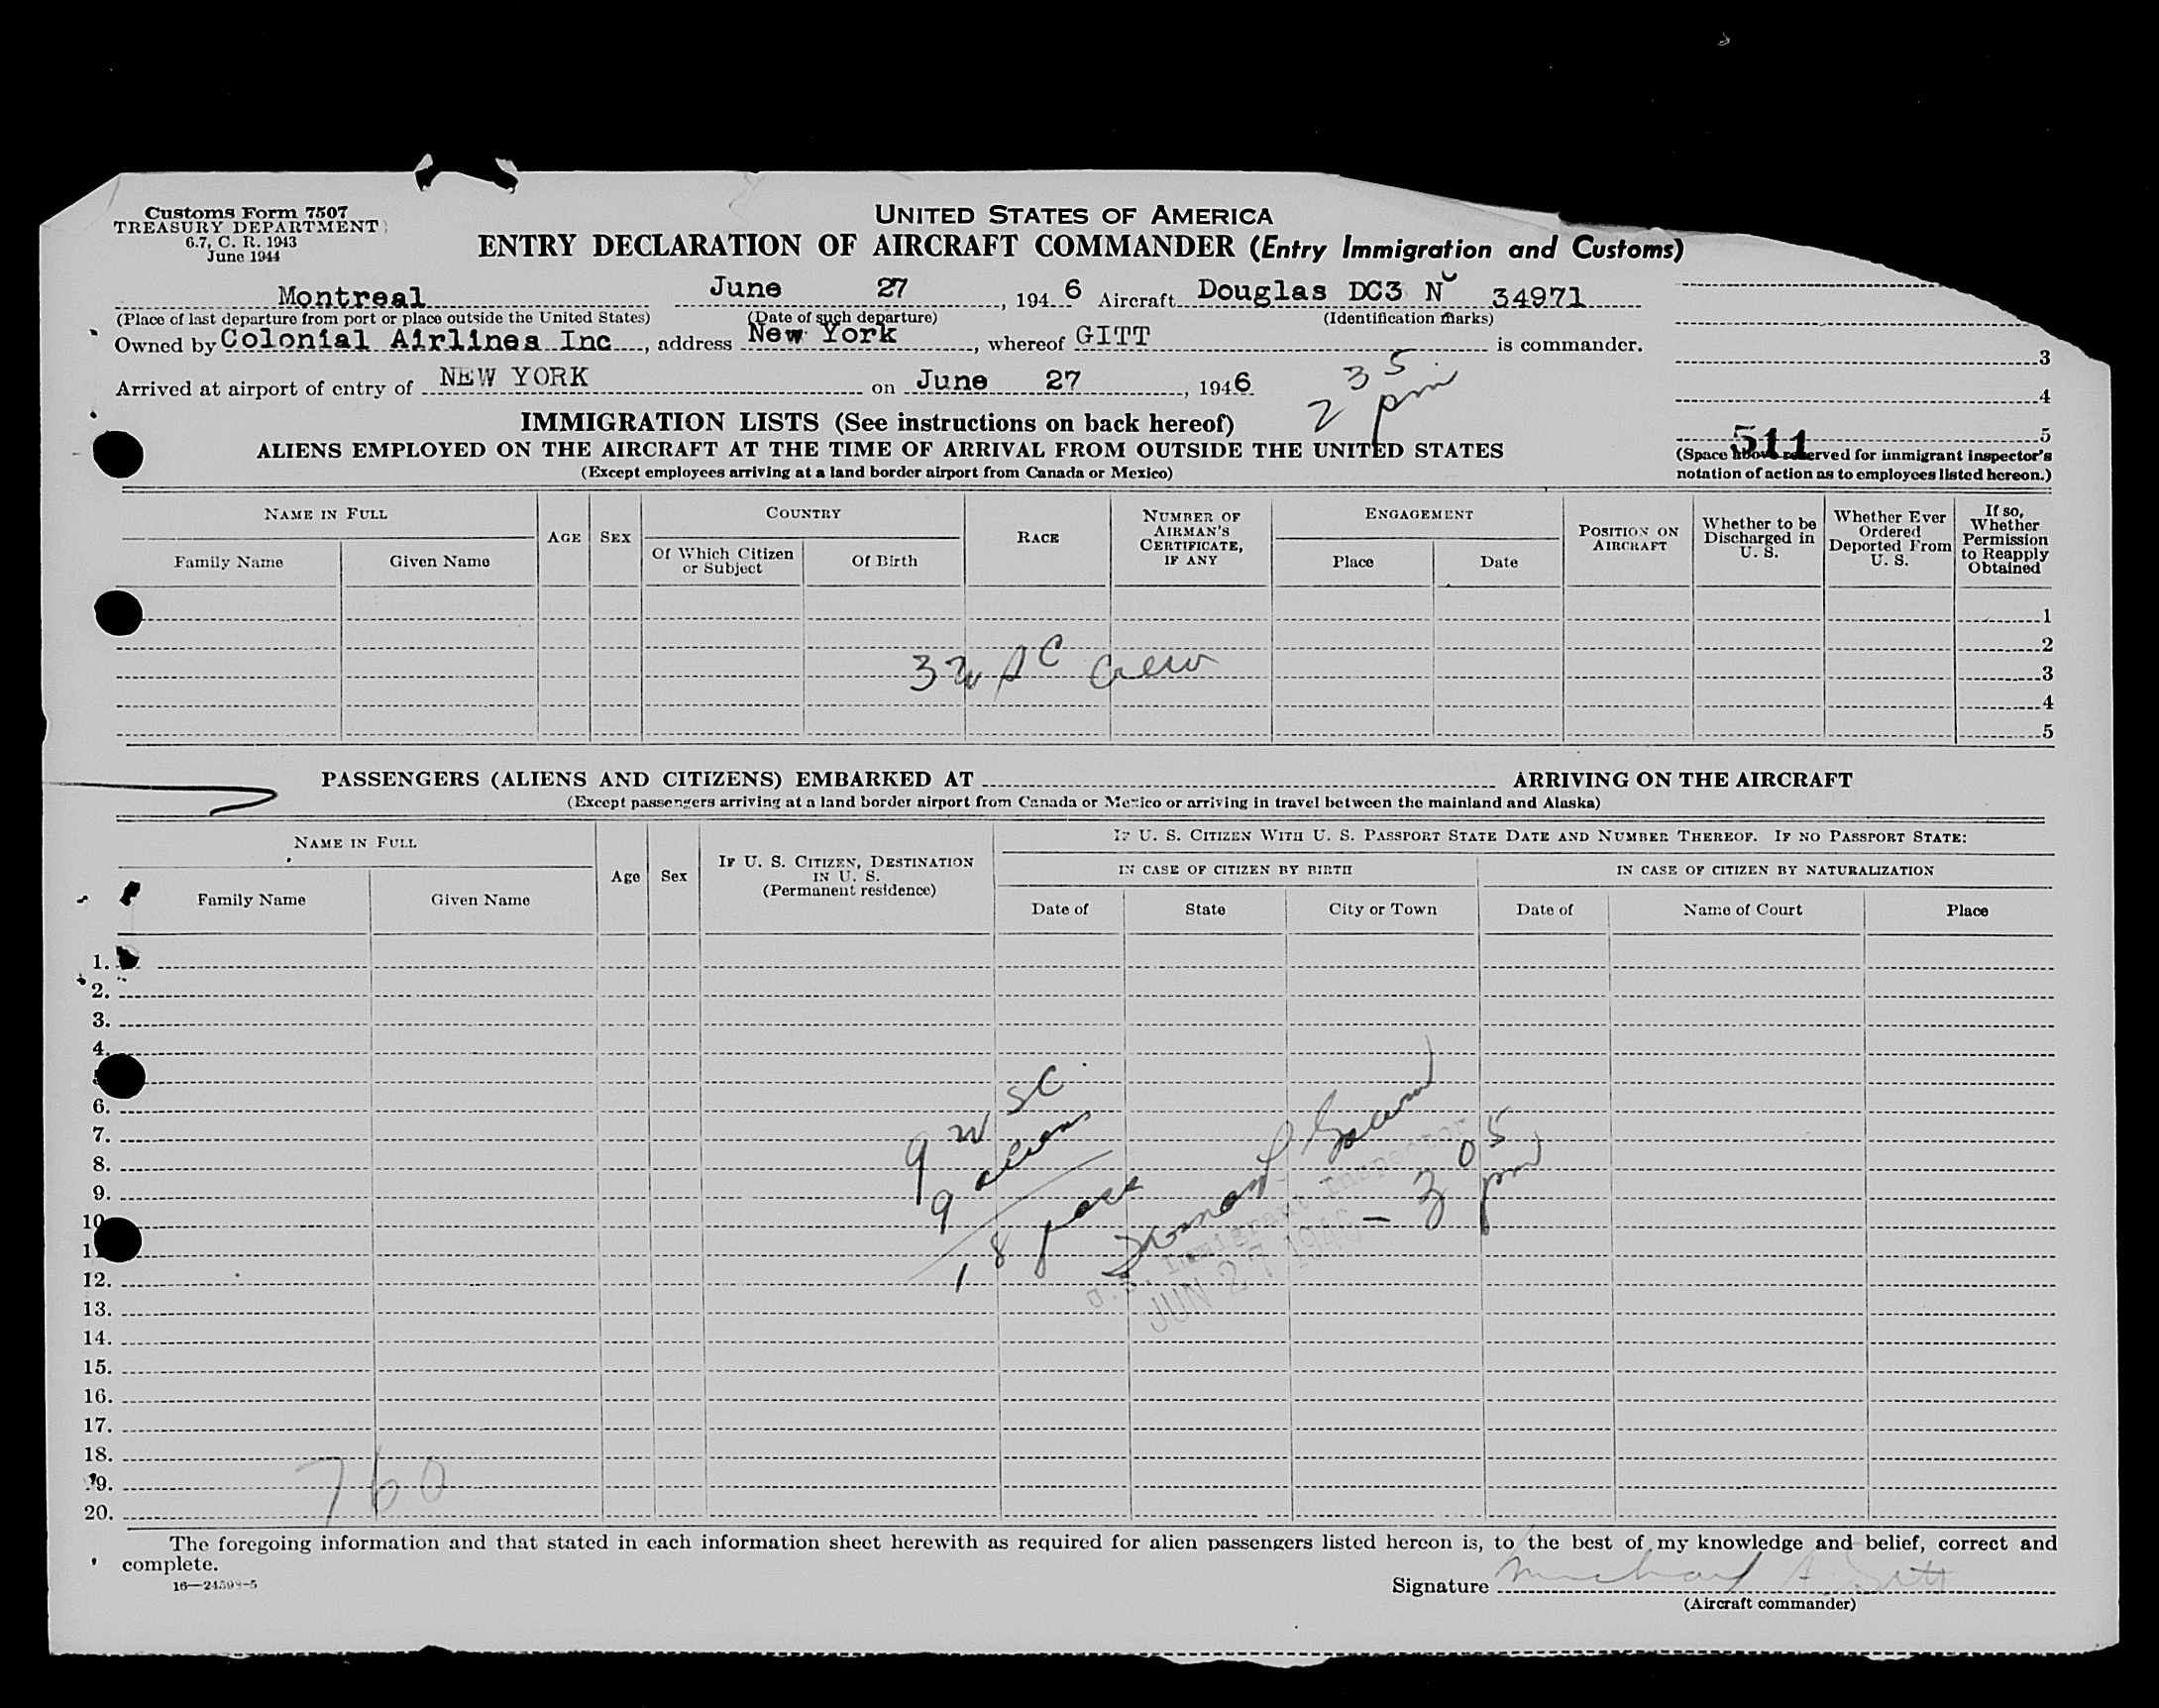 Customs Form 7507
TREASURY DEPARTMENT
6.7, C. R. 1943
June 1944
UNITED STATES OF AMERICA
ENTRY DECLARATION OF AIRCRAFT COMMANDER (Entry Immigration and Customs)
Montreal June 27, 1946 Aircraft Douglas DC3 N 34971
(Place of last departure from port or place outside the United States) (Date of such departure) (Identification marks)
Owned by Colonial Airlines Inc, address New York, whereof GITT is commander.
Arrived at airport of entry of NEW YORK on June 27, 1946
2 35 pm
3
4
5
511
(Space above reserved for immigrant inspector's notation of action as to employees listed hereon.)
IMMIGRATION LISTS (See instructions on back hereof)
ALIENS EMPLOYED ON THE AIRCRAFT AT THE TIME OF ARRIVAL FROM OUTSIDE THE UNITED STATES
(Except employees arriving at a land border airport from Canada or Mexico)
NAME IN FULL
Family Name
Given Name
AGE
SEX
COUNTRY
Of Which Citizen or Subject
Of Birth
RACE
NUMBER OF AIRMAN'S CERTIFICATE, IF ANY
ENGAGEMENT
Place
Date
POSITION ON AIRCRAFT
Whether to be Discharged in U. S.
Whether Ever Ordered Deported From U. S.
If so, Whether Permission to Reapply Obtained
1
2
3
4
5
3 u S C Crew
PASSENGERS (ALIENS AND CITIZENS) EMBARKED AT ARRIVING ON THE AIRCRAFT
(Except passengers arriving at a land border airport from Canada or Mexico or arriving in travel between the mainland and Alaska)
NAME IN FULL
Family Name
Given Name
Age
Sex
IF U. S. CITIZEN, DESTINATION IN U. S.
(Permanent residence)
IF U. S. CITIZEN WITH U. S. PASSPORT STATE DATE AND NUMBER THEREOF. IF NO PASSPORT STATE:
IN CASE OF CITIZEN BY BIRTH
IN CASE OF CITIZEN BY NATURALIZATION
Date of
State
City or Town
Date of
Name of Court
Place
1.
2.
3.
4.
6.
7.
8.
9.
10
12.
13.
14.
15.
16.
17.
18.
19.
20.
9 u SC
9 aliens
18 pass
U.S. Immigrant Inspector
JUN 27 1946 - 3 05 pm
760
The foregoing information and that stated in each information sheet herewith as required for alien passengers listed hereon is, to the best of my knowledge and belief, correct and complete.
16—24598-5
Signature Michael A. Gitt
(Aircraft commander)